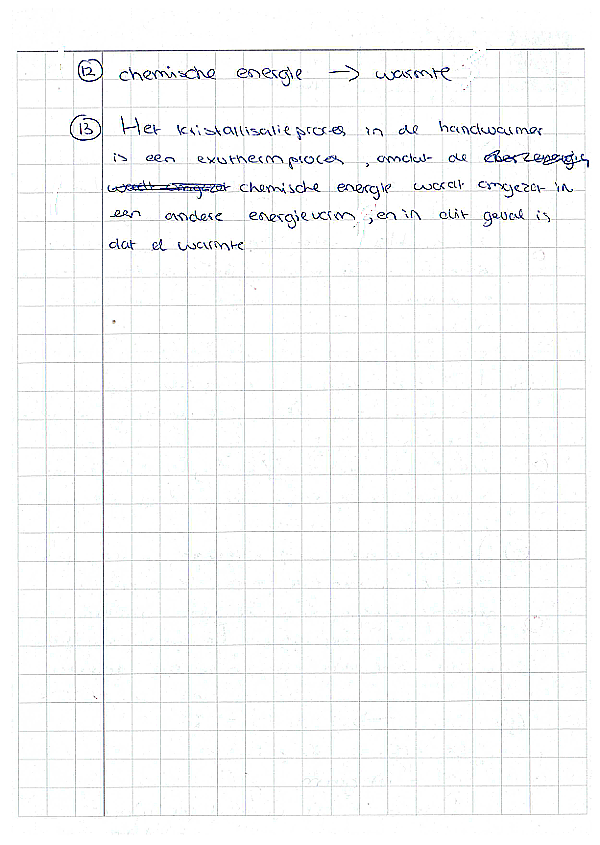 12 chemische energie → warmte
13 Het kristallisatieproces in de handwarmer
is een exotherm proces, omdat de
chemische energie wordt omgezet in
een andere energievorm, en in dit geval is
dat el warmte